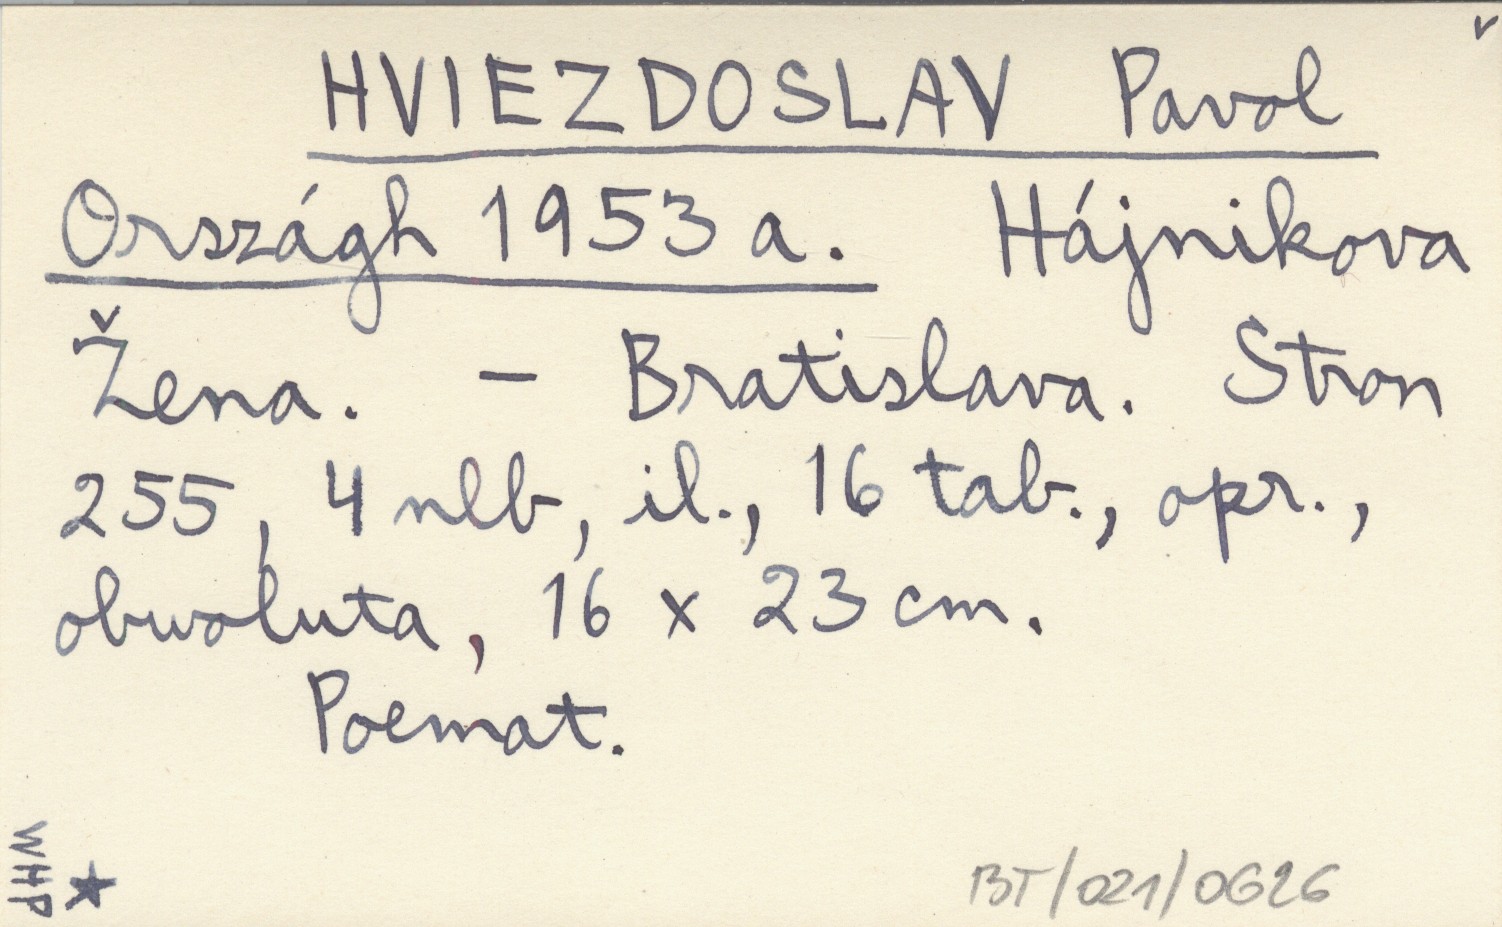 HVIEZDOSLAV Pavol
Országh 1953 a. Hájnikova
Žena. – Bratislava. Stron
255, 4 nlb, il., 16 tab., opr.,
obwoluta, 16 x 23 cm.
Poemat.
WHP
BT/021/0626